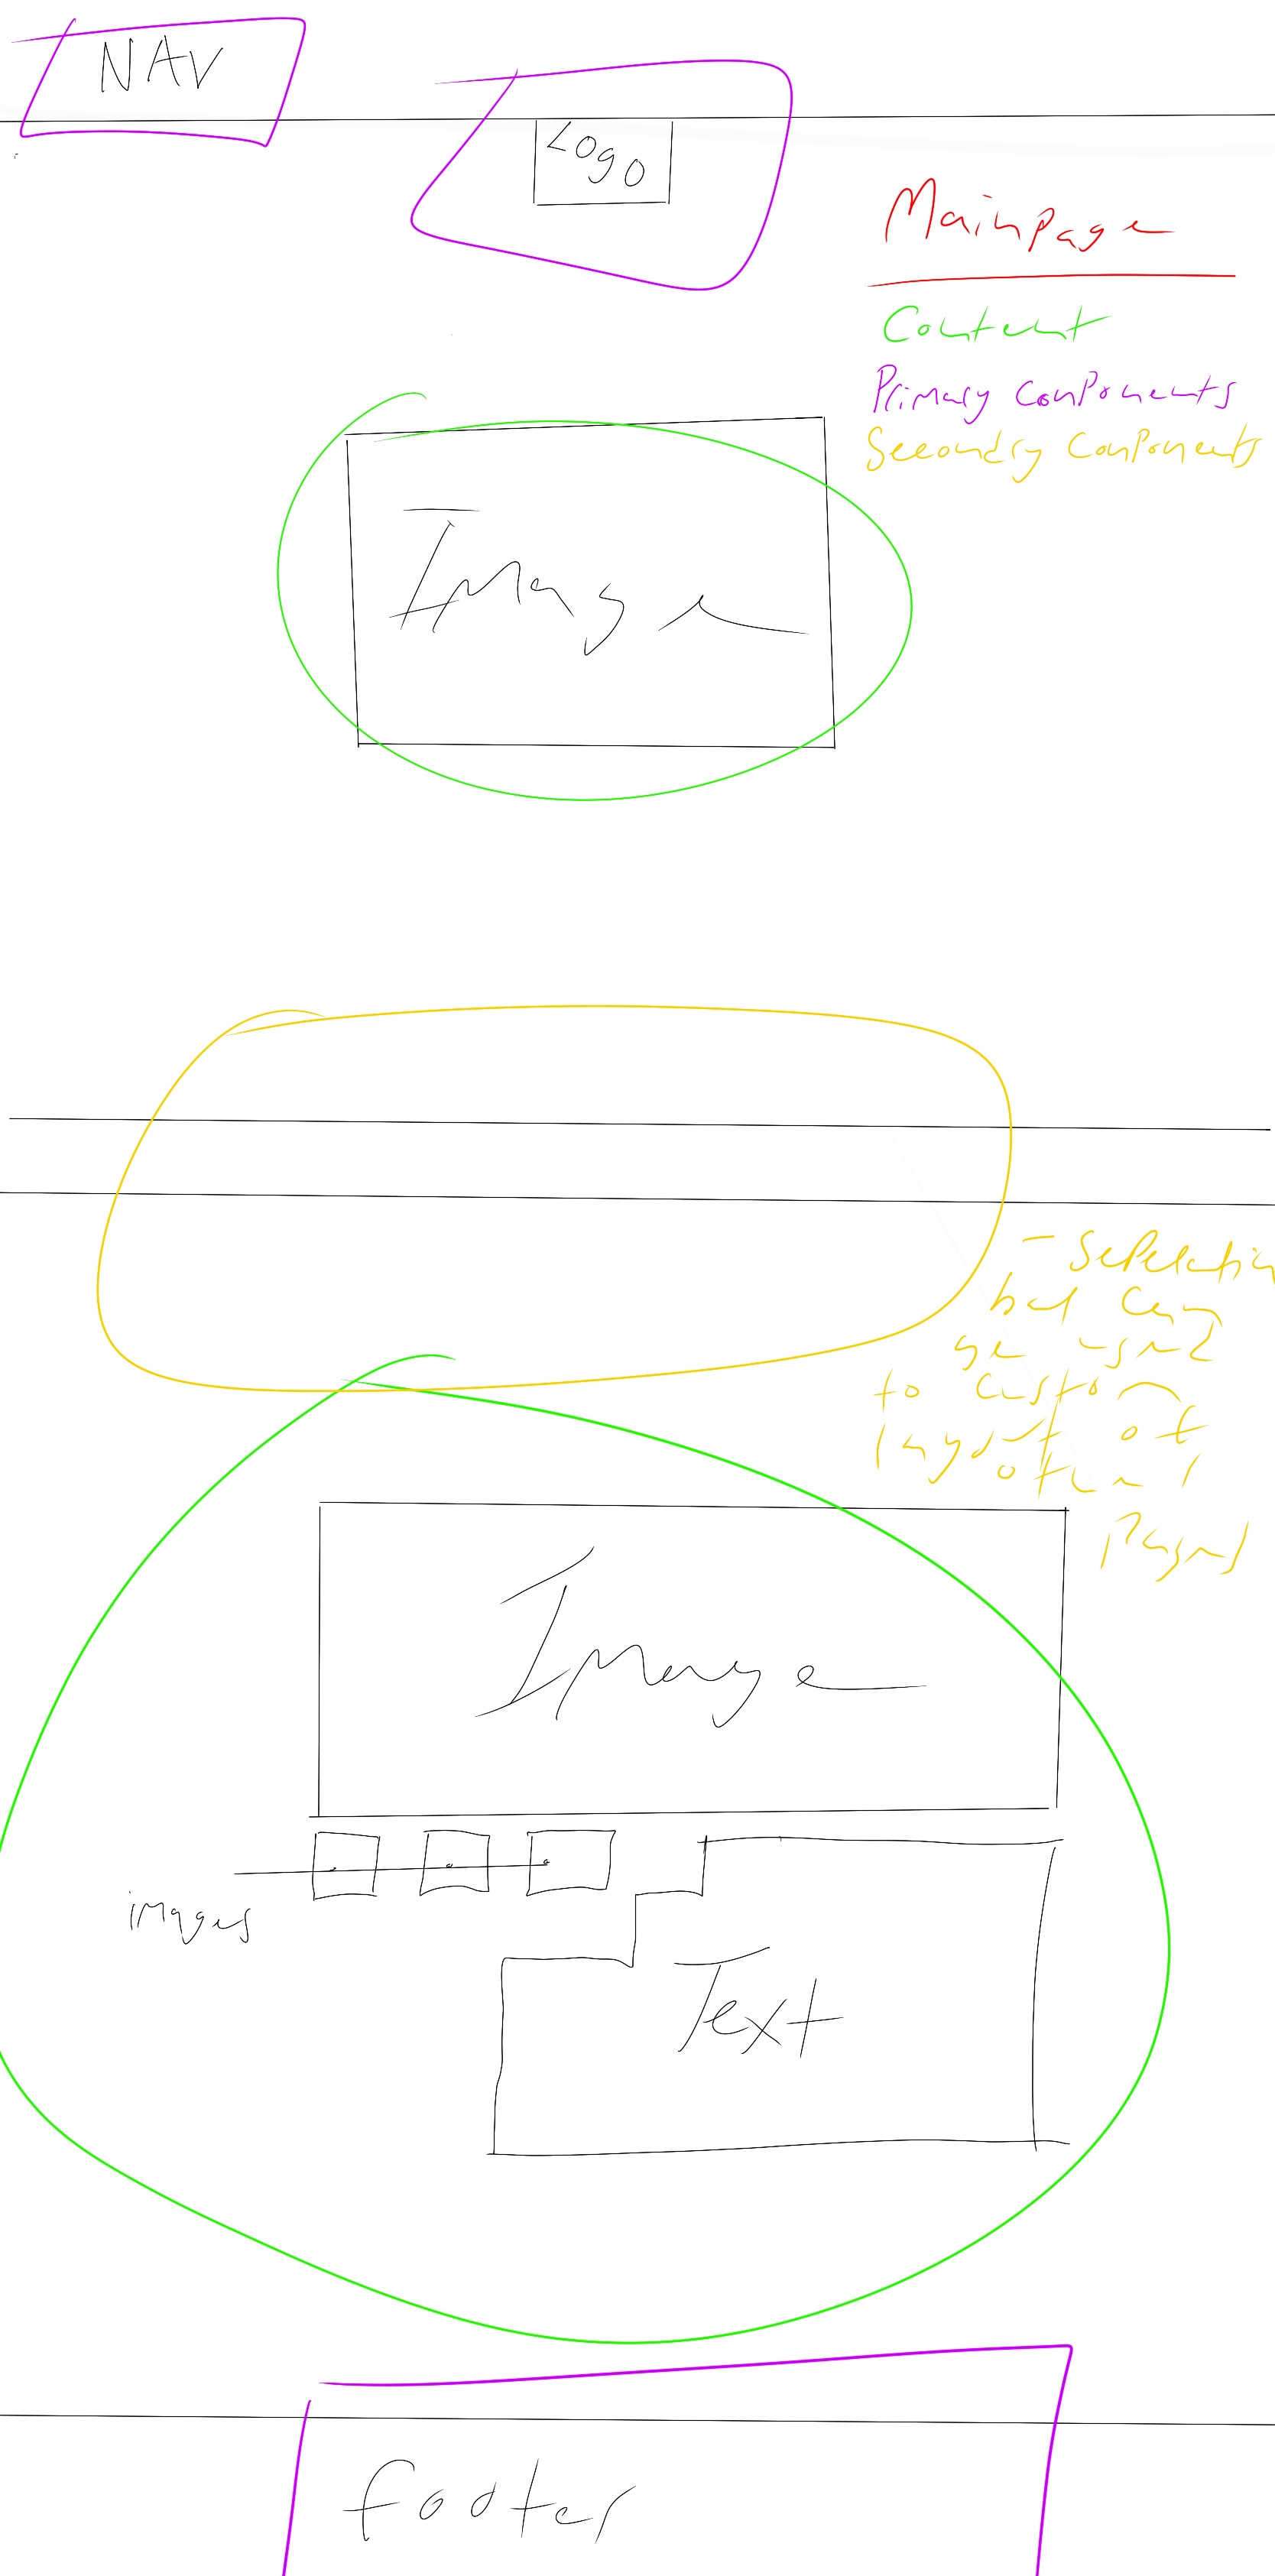 NAV
Logo
Mainpage
Content
Primary Components
Secondry Components
Image
- Seperation
but can
be used
to custom
layout of
other
Pages
Image
images
Text
footer